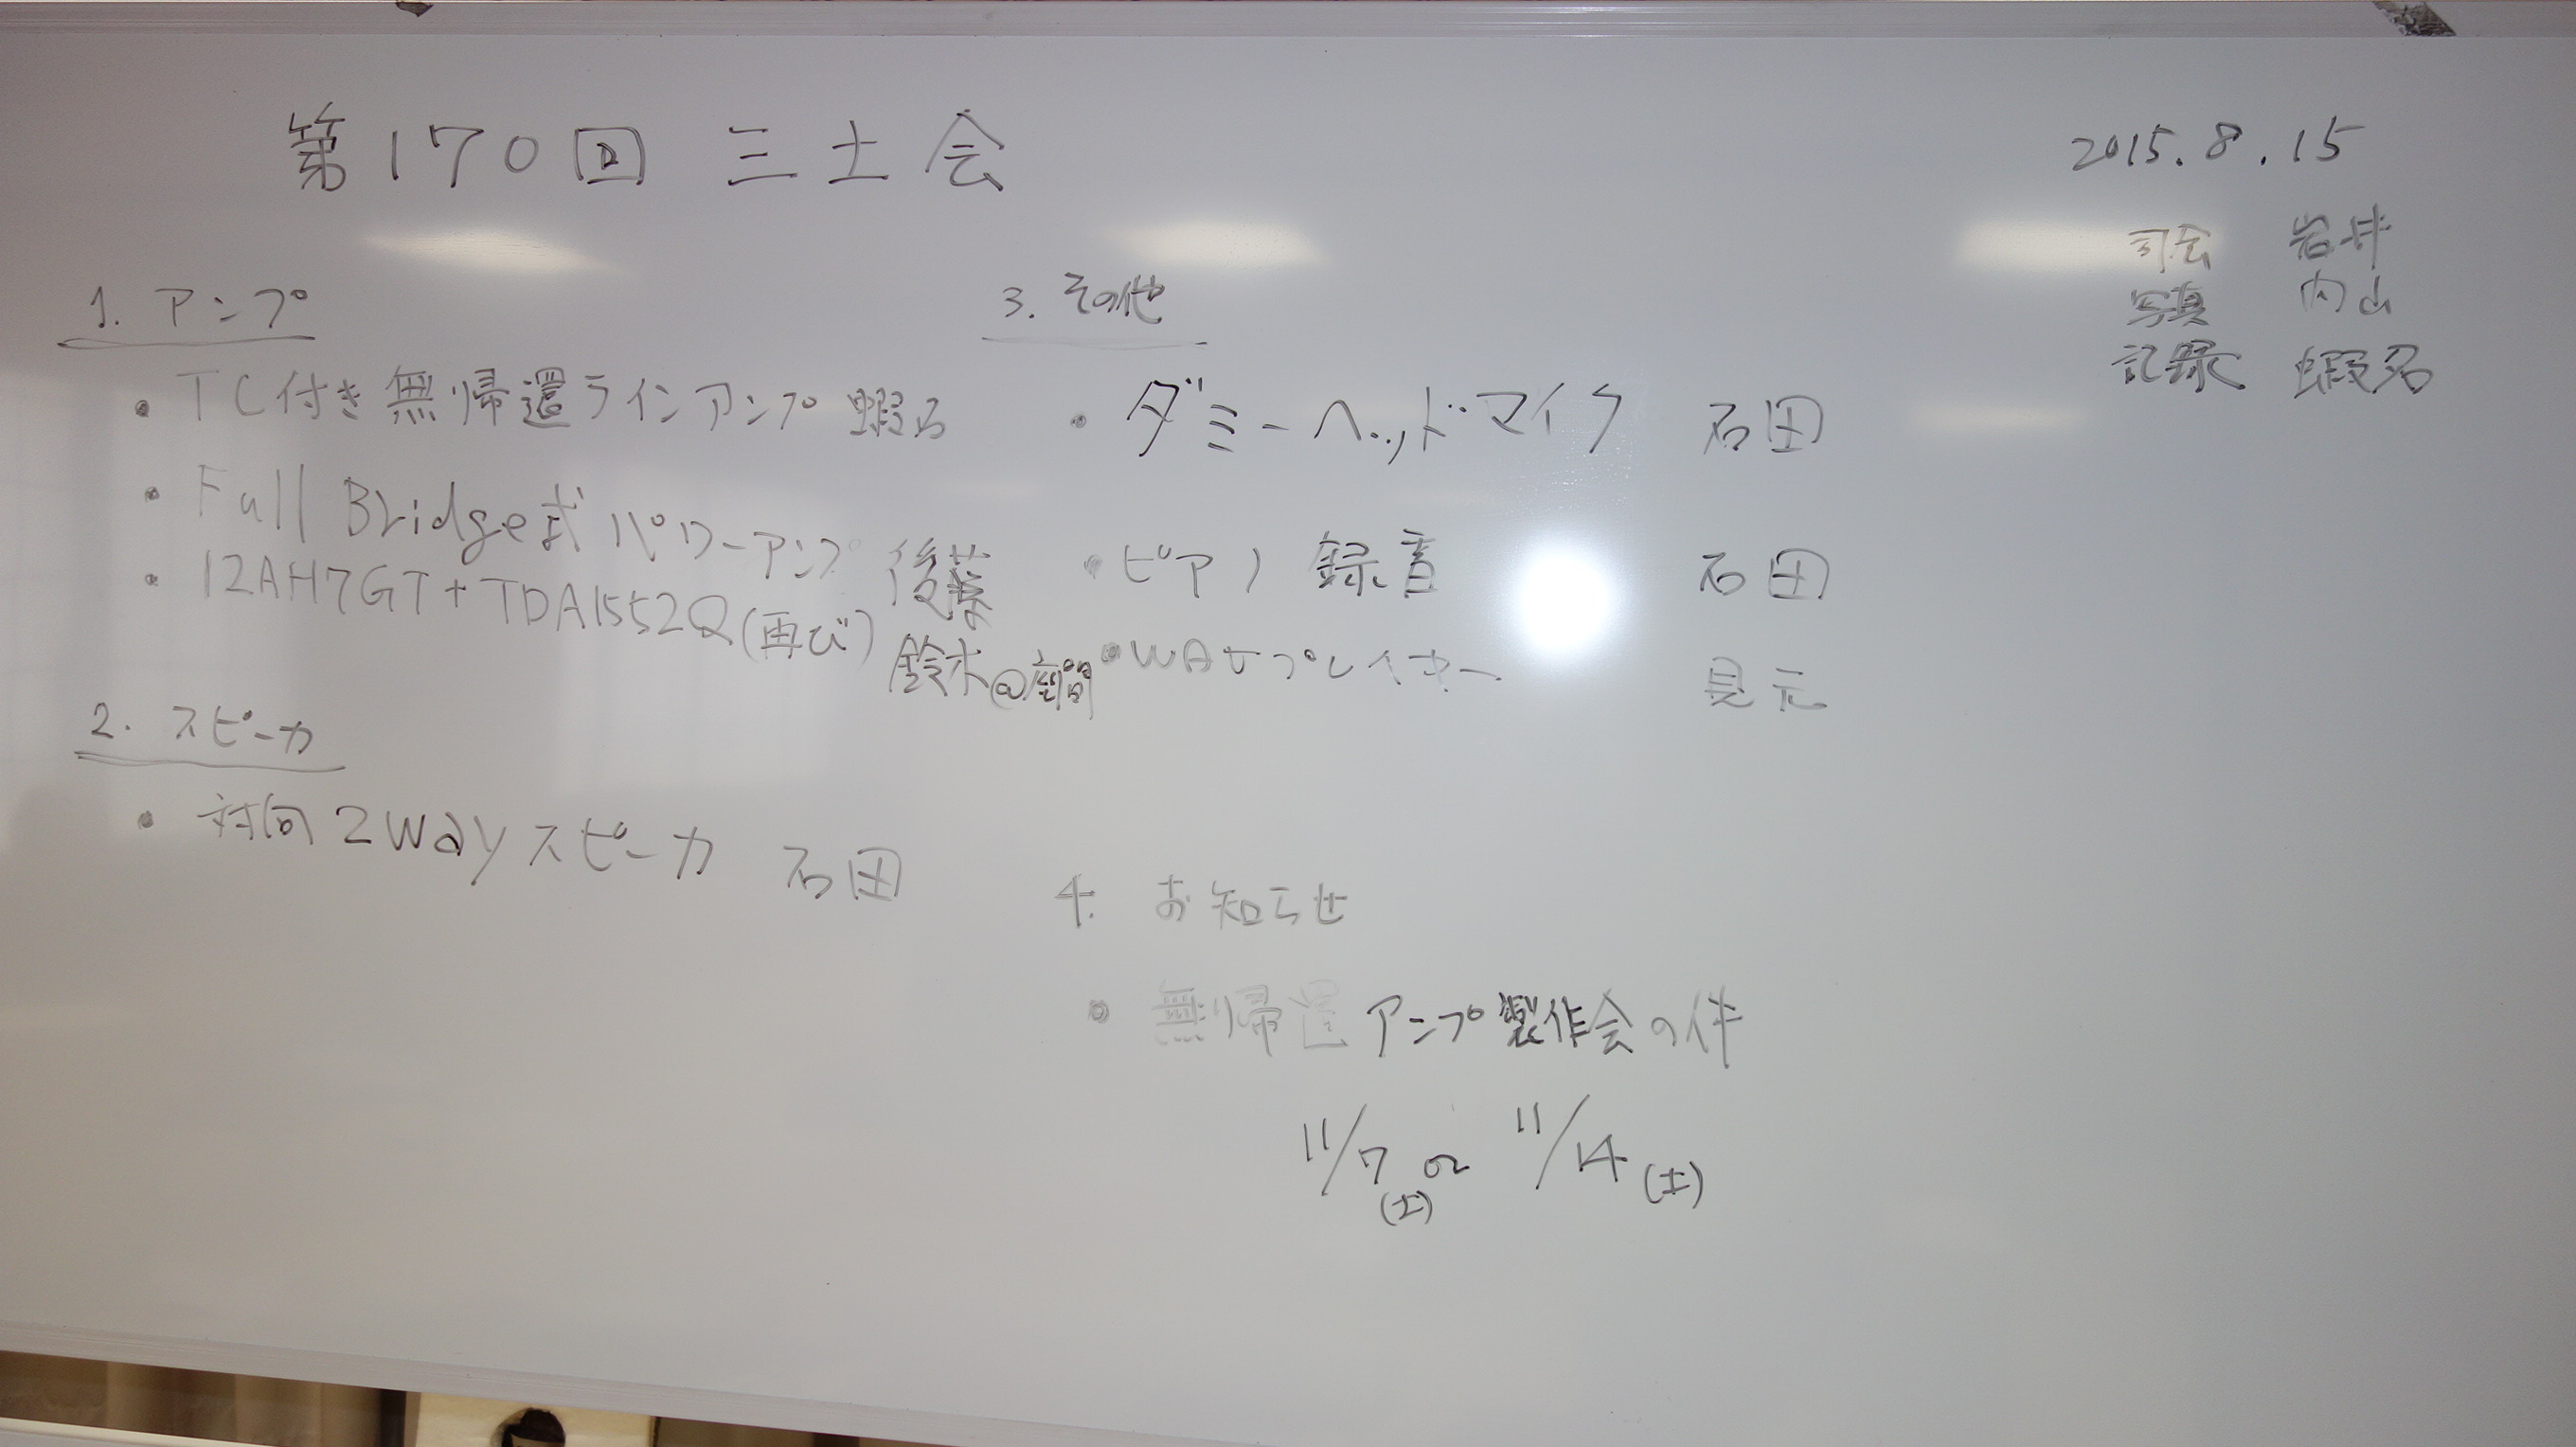 第170回 三土会
2015.8.15
司会 岩井
写真 内山
記録 蝦名
1. アンプ
・TC付き無帰還ラインアンプ 蝦名
・Full Bridge式パワーアンプ 後藤
・12AH7GT+TDA1552Q(再び) 鈴木@座間
2. スピーカ
・対向2wayスピーカ 石田
3. その他
・ダミーヘッドマイク 石田
・ピアノ 録音 石田
・WAVプレイヤー 見元
4. お知らせ
・無帰還アンプ製作会の件
11/7(土) or 11/14(土)